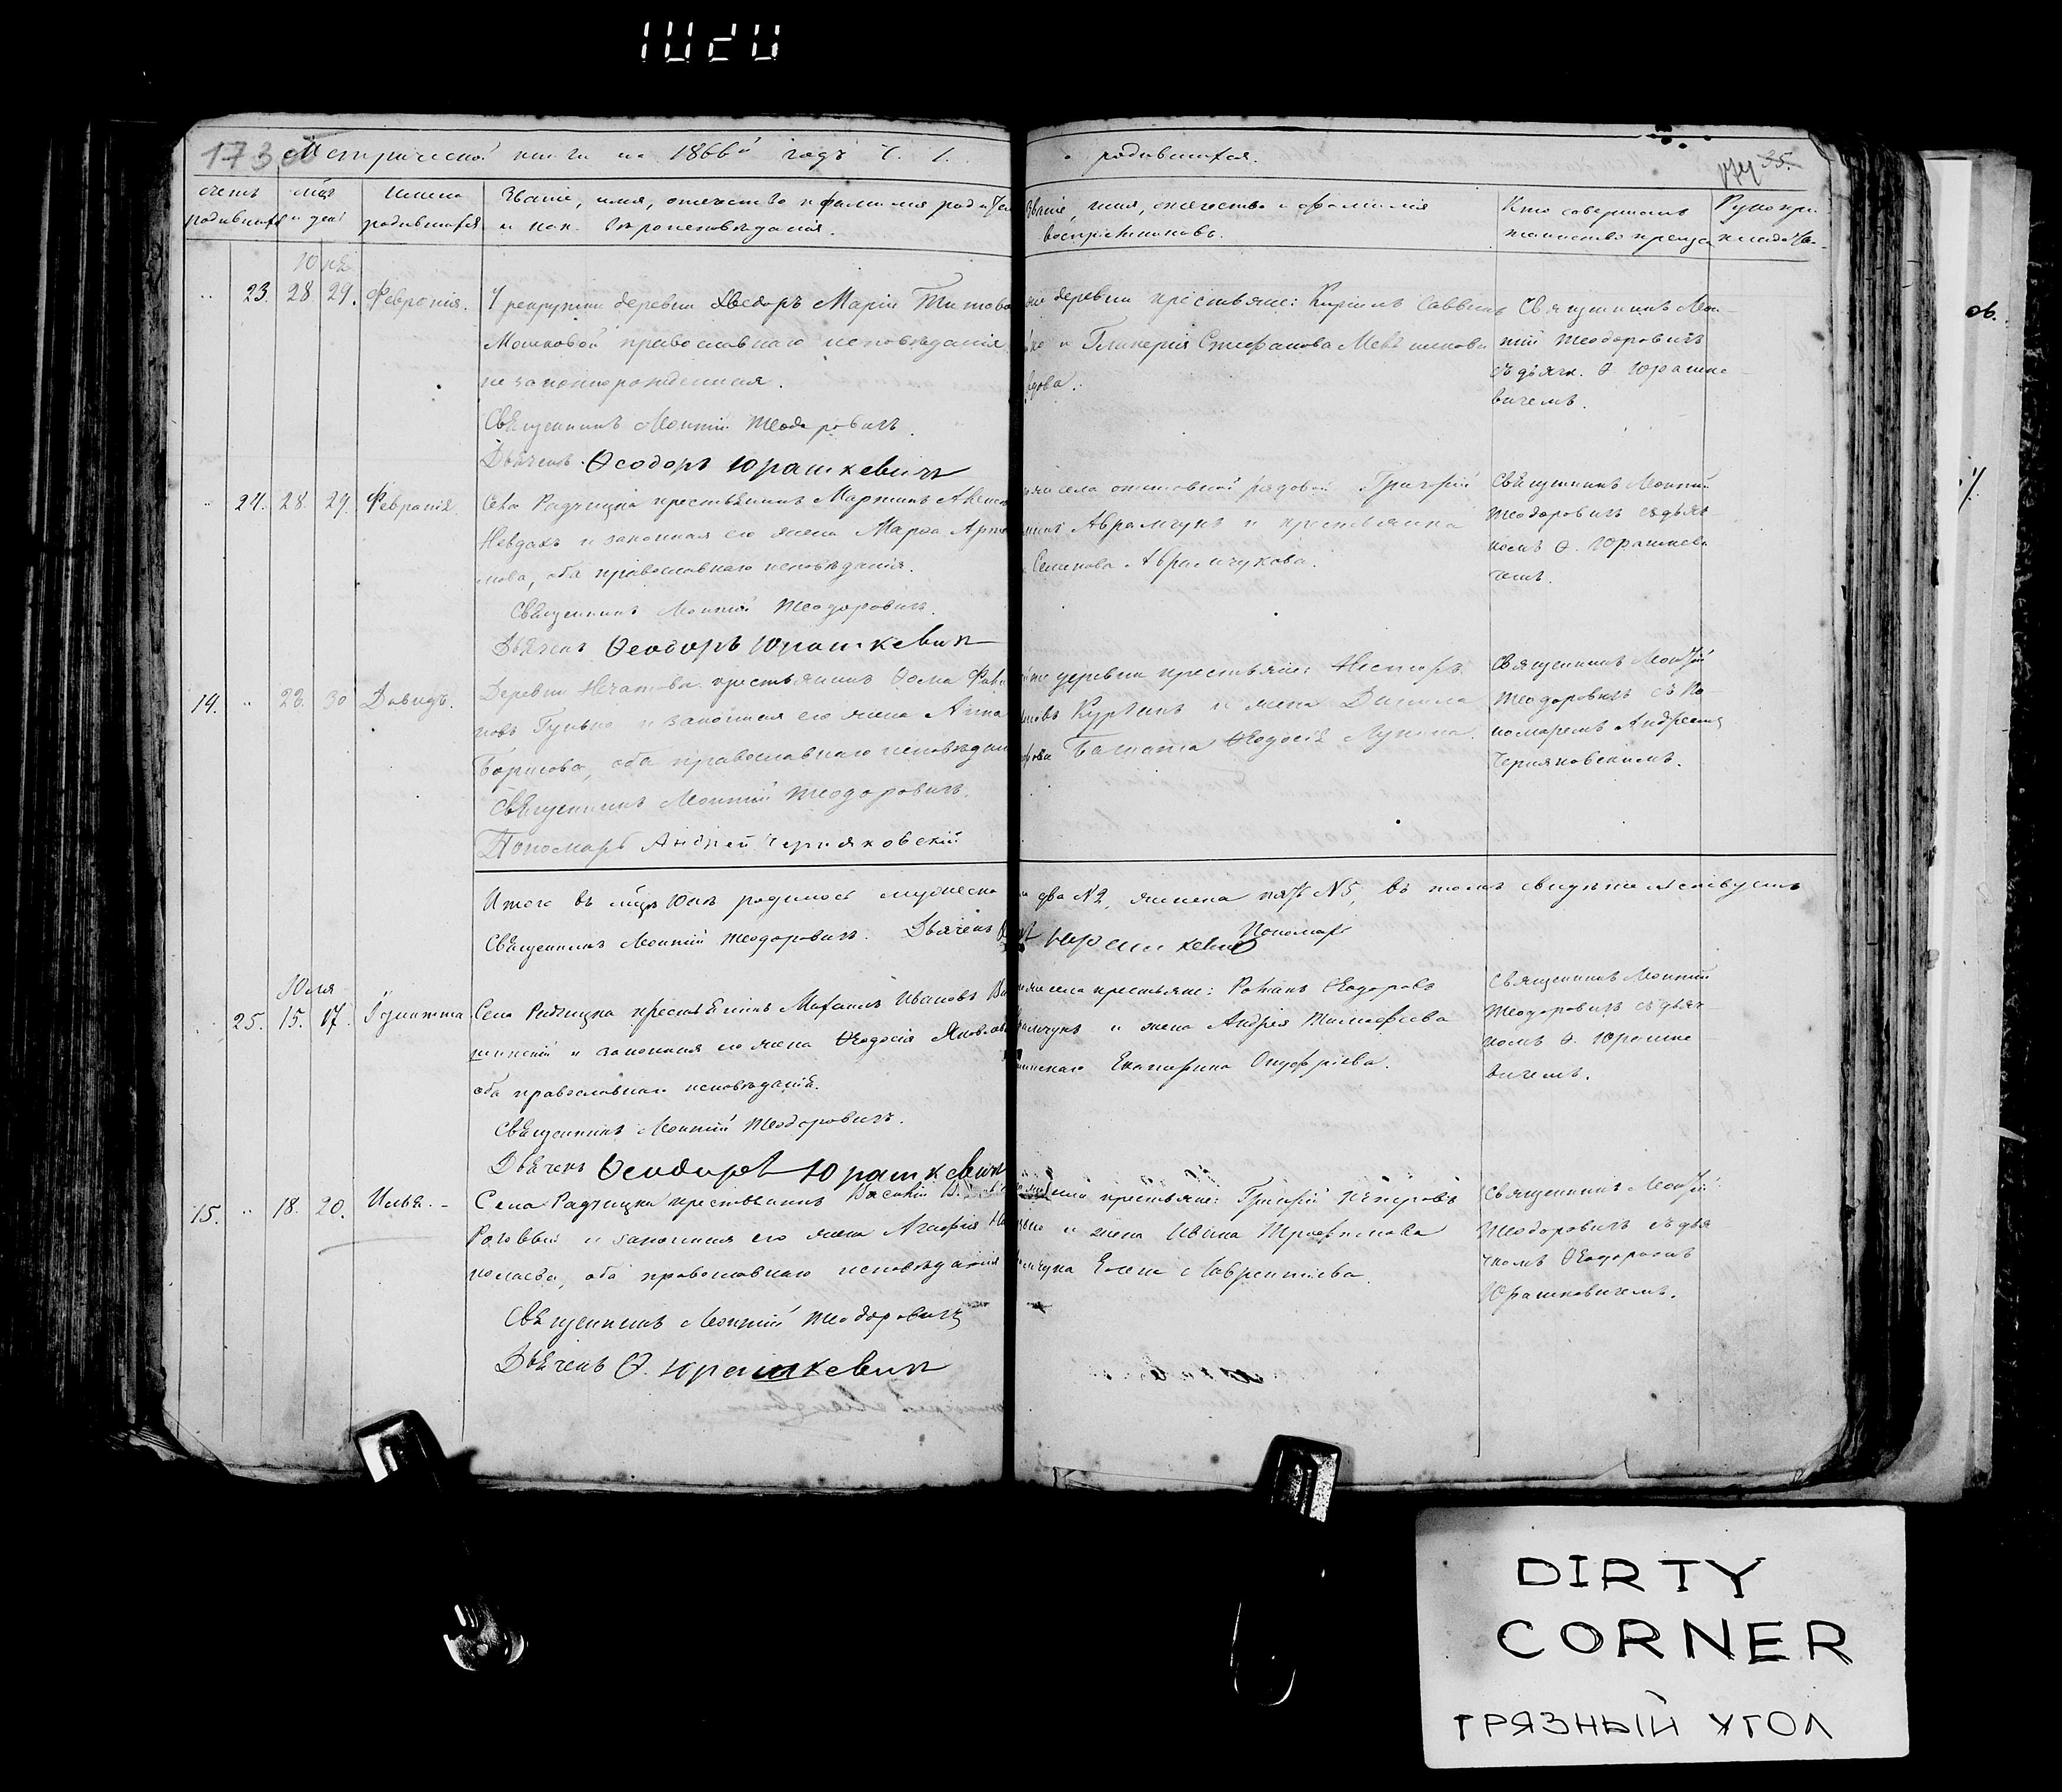 1020
173 Метрической книги на 1866й годъ Ч. 1. о родившихся.
35.
счетъ родившихся
мцъ и день
имена родившихся
Званіе, имя, отечество и фамилія
и как. вѣроисповѣданія.
Званіе, имя, отечество и фамилія
воспріемниковъ.
Кто совершалъ
таинство
Юнь
23. 28 29. Февронія.
деревни Дведоръ Марія Титова
православнаго исповѣданія
незаконнорожденная.
Священникъ Монтій Теодоровичъ.
Дьячекъ Ѳеодоръ Юрашкевичъ
деревни крестьяне: Кириллъ Саввинъ
и Гликерія Стефанова
вдова.
Священникъ Мон-
тій Теодоровичъ
съ дьячк. Ѳ. Юрашке-
вичемъ.
24. 28. 29. Февронія.
Села Радчицка крестьянинъ Мартинъ
Невдахъ и законная его жена Марѳа Арте
мова, оба православнаго исповѣданія.
Священникъ Монтій Теодоровичъ.
Дьячекъ Ѳеодоръ Юрашкевичъ
села отставной рядовой Григорій
Аврамчукъ и крестьянка
Семенова Аврамчукова.
Священникъ Монтій
Теодоровичъ съ дьяч
комъ Ѳ. Юрашкеви
чемъ.
14. 28. 30 Давидъ.
Деревни крестьянинъ Ѳома
новъ Гунько и законная его жена Анна
Борисова, оба православнаго исповѣдан
Священникъ Монтій Теодоровичъ.
Пономарь Андрей Черняковскій
деревни крестьяне: Несторъ
и жена Данила
Ѳеодосія Лукина.
Священникъ Монтій
Теодоровичъ съ по-
номаремъ Андреемъ
Черняковскимъ.
Итого въ мцѣ Юнѣ родилось мужеска
два №2, женска пять №5, въ томъ свидѣтельствуемъ
Священникъ Монтій Теодоровичъ. Дьячекъ Ѳ. Юрашкевичъ Пономарь
Юля
25. 15. 17. Іулитта
Села Радчицка крестьянинъ Михаилъ Ивановъ
и законная его жена Ѳеодосія Яковлева
оба православнаго исповѣданія.
Священникъ Монтій Теодоровичъ.
Дьячекъ Ѳеодоръ Юрашкевичъ
села крестьяне: Романъ Ѳеодоровъ
и жена Андрея Тимофеева
Екатерина Онуфріева.
Священникъ Монтій
Теодоровичъ съ дьяч
комъ Ѳ. Юрашке
вичемъ.
15. 18. 20. Илья.
Села Радчицка крестьянинъ Василій
и законная его жена Агафія Ни
колаева, оба православнаго исповѣданія
Священникъ Монтій Теодоровичъ
Дьячекъ Ѳ. Юрашкевичъ
села крестьяне: Григорій Петровъ
и жена Ивана Трофимова
Елена Лаврентіева.
Священникъ Монтій
Теодоровичъ съ дья
чкомъ Ѳеодоромъ
Юрашковичемъ.
DIRTY
CORNER
ГРЯЗНЫЙ УГОЛ